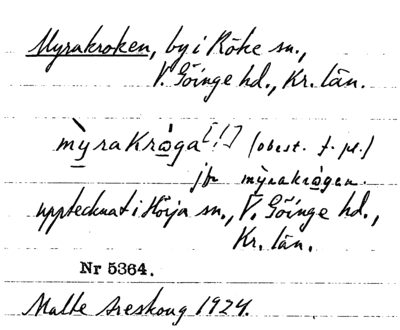 Myrakroken, by i Röke sn.,
V. Göinge hd., Kr. län.
mỳrakrǫ̀ga [!] (obest. f. pl.)
jfr mỳrakrǫgen.
upptecknat i Hörja sn., V. Göinge hd.,
Kr. län.
Nr 5364.
Malte Areskoug 1924.